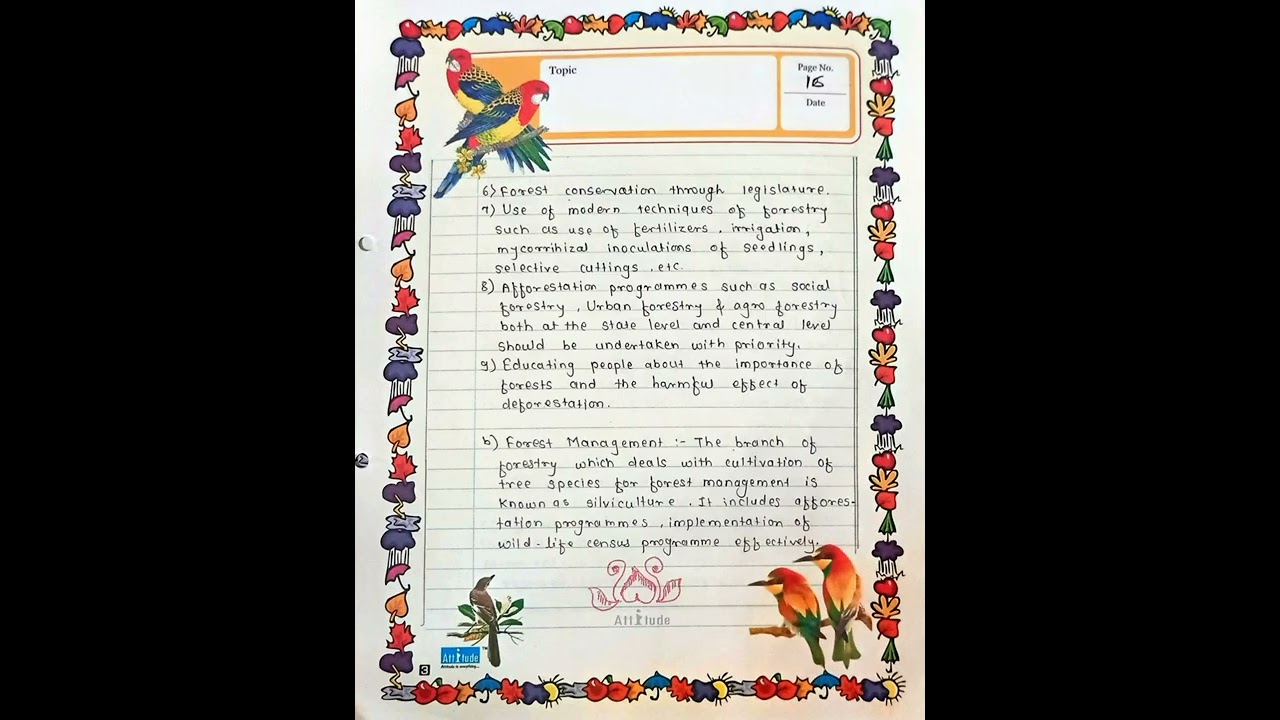 Topic
Page No.
16
Date
6) Forest conservation through legislature.
7) Use of modern techniques of forestry
such as use of fertilizers, irrigation,
mycorrihizal inoculations of seedlings,
selective cuttings, etc.
8) Afforestation programmes such as social
forestry, Urban forestry & agro forestry
both at the state level and central level
should be undertaken with priority.
9) Educating people about the importance of
forests and the harmful effect of
deforestation.
b) Forest Management :- The branch of
forestry which deals with cultivation of
tree species for forest management is
known as silviculture. It includes affores-
tation programmes, implementation of
wild-life census programme effectively.
Attitude
Attitude TM
Attitude is everything...
3